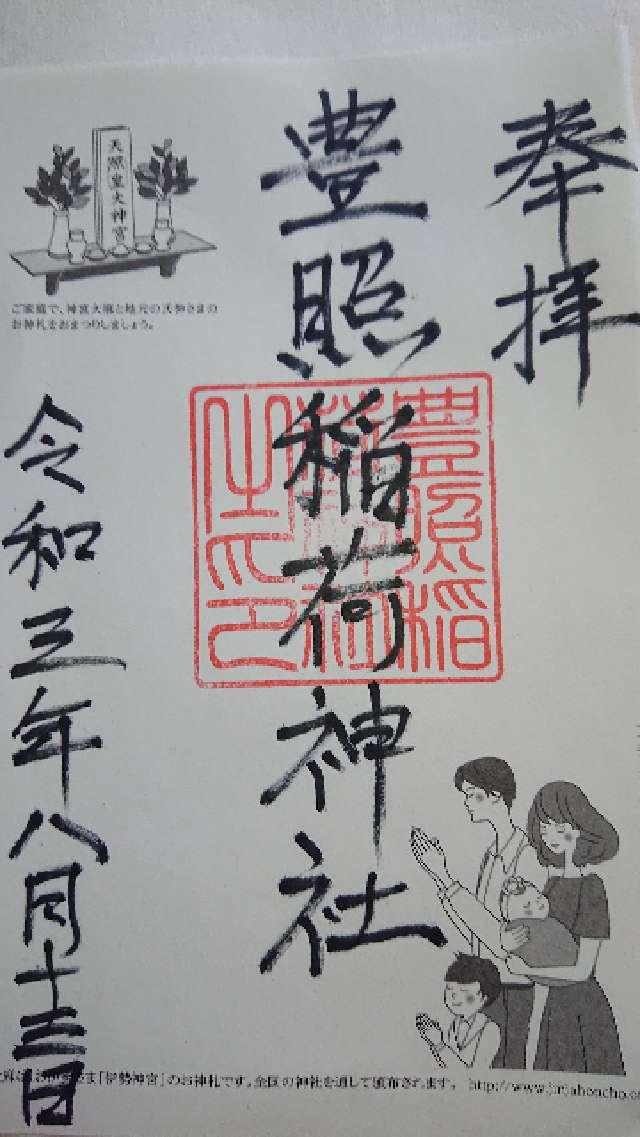 奉拝
豊照稲荷神社
豊照稲
荷神社
之印
令和三年八月十三日
天照皇大神宮
ご家庭で、神宮大麻と地元の氏神さまの
お神札をおまつりしましょう。
「伊勢神宮」のお神札です。全国の神社を通して頒布されます。 http://www.jinjahoncho.o